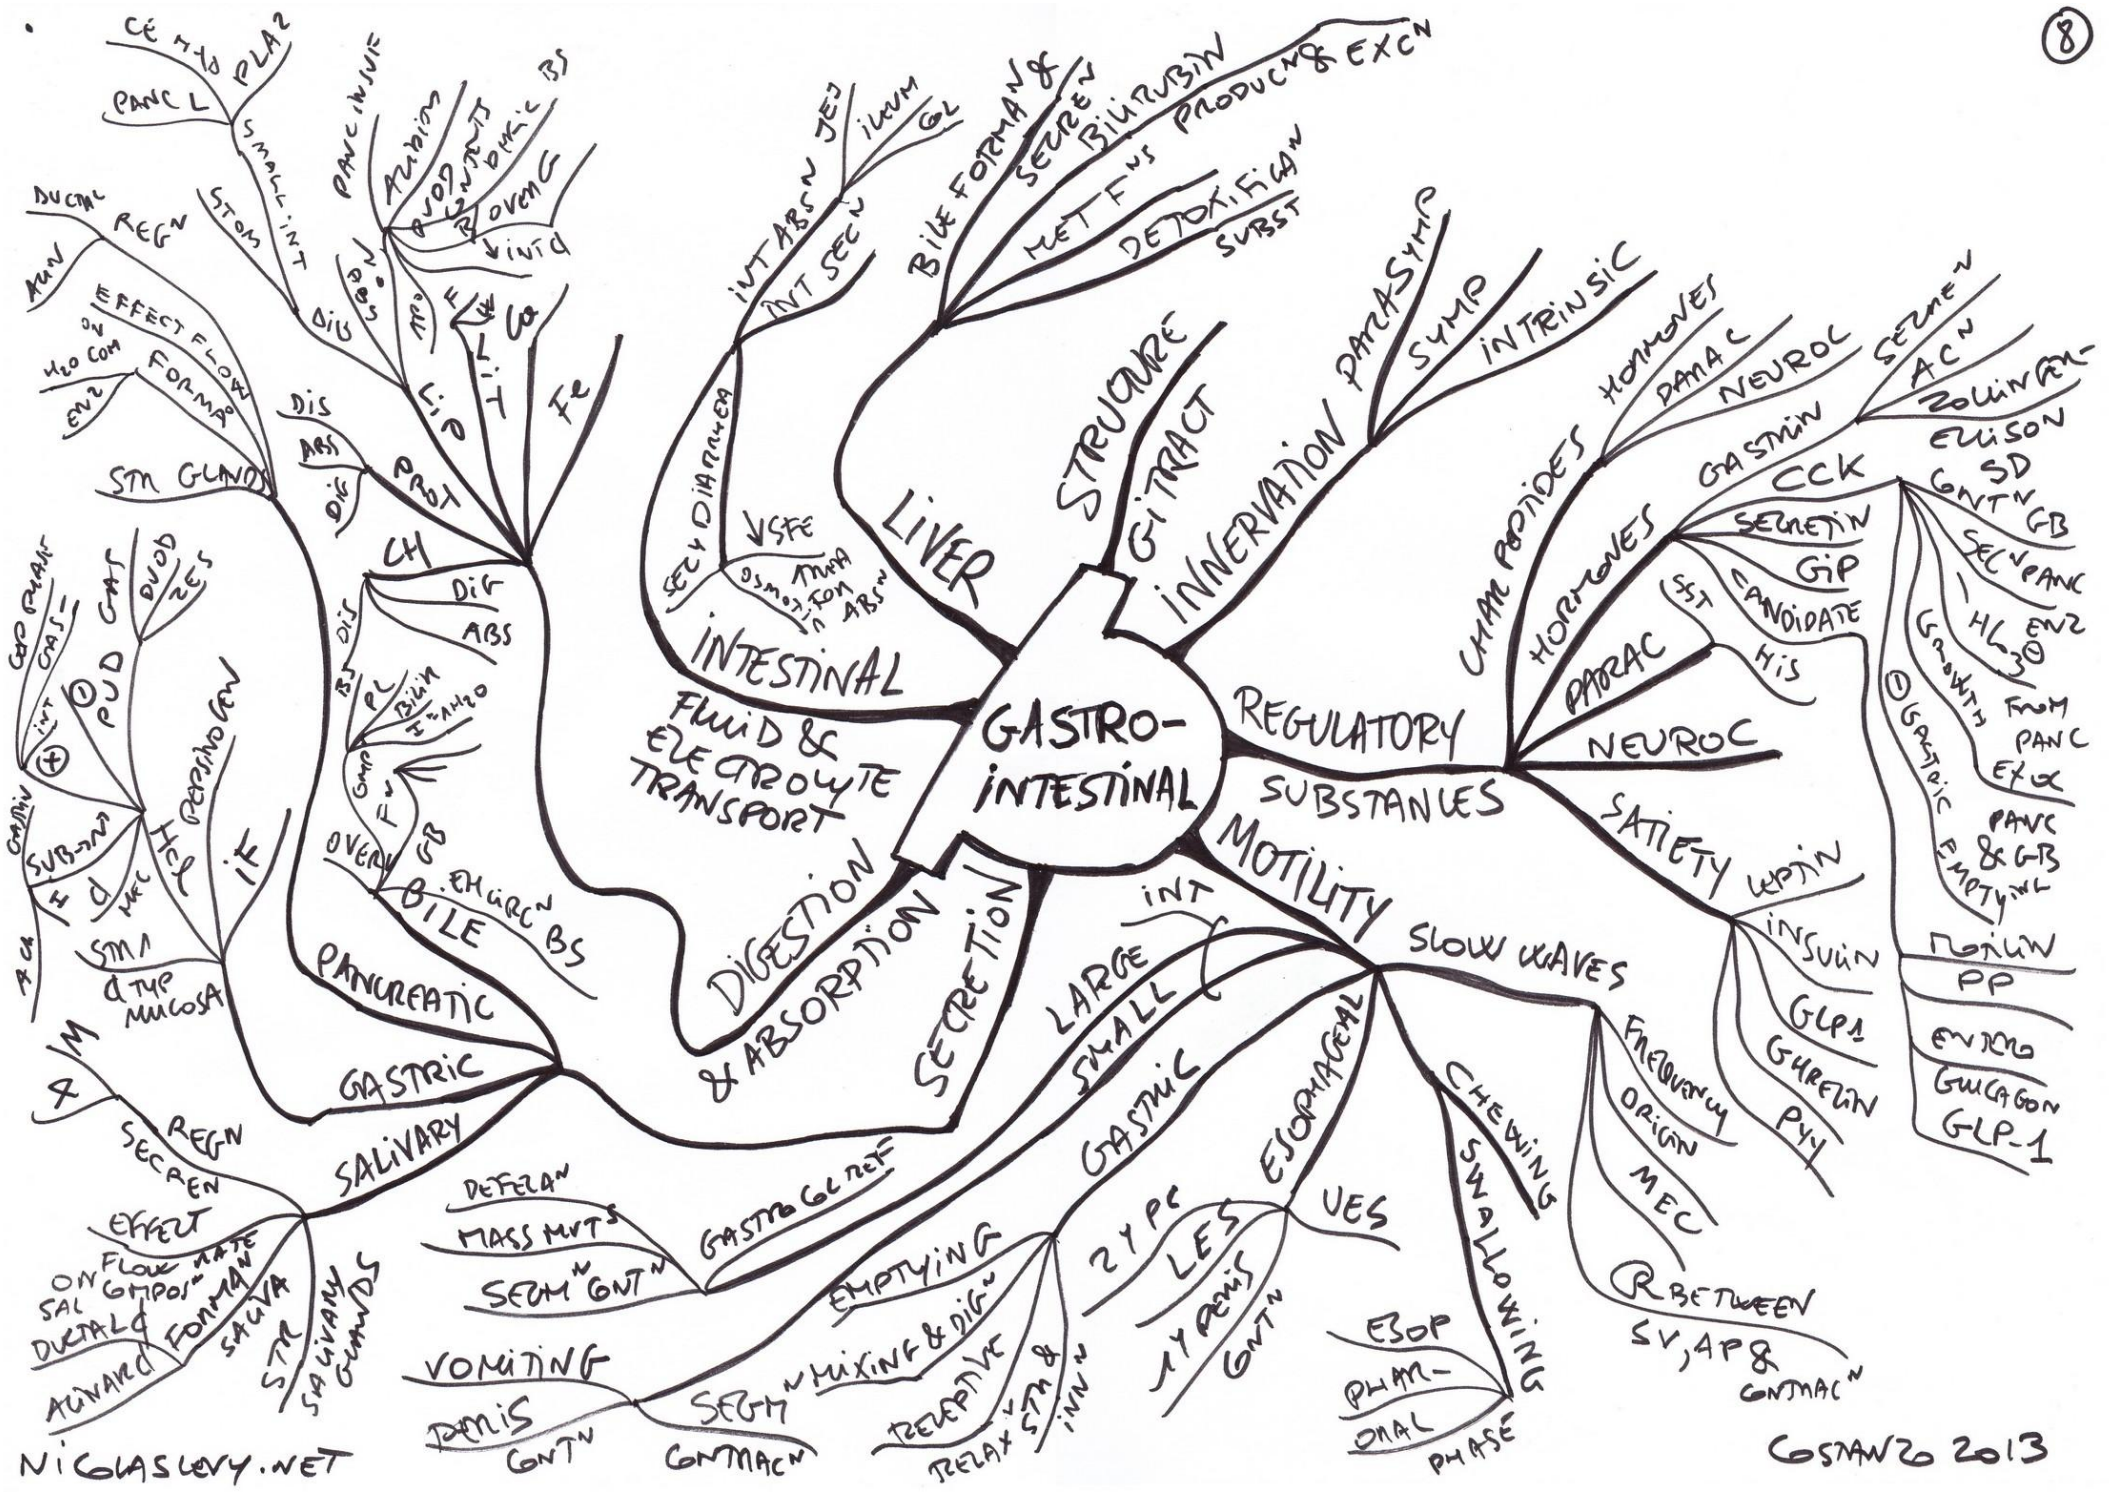 8
GASTRO-
INTESTINAL
STRUCTURE
GI TRACT
INNERVATION
PARASYMP
SYMP
INTRINSIC
REGULATORY
SUBSTANCES
CHAR PEPTIDES
HORMONES
PARAC
NEUROC
HORMONES
GASTRIN
SECRE^N
AC^N
ZOLLINGER-
ELLISON
SD
CCK
CONT^N
GB
SEC^N PANC
ENZ
HCO3⊖
FROM
PANC
GROWTH
EXOC
PANC
& GB
⊖ GASTRIC
EMPTYING
SECRETIN
GIP
CANDIDATE
MOTILIN
PP
ENTERO
GLUCAGON
GLP-1
PARAC
SST
HIS
NEUROC
SATIETY
LEPTIN
INSULIN
GLP1
GHRELIN
PYY
MOTILITY
SLOW WAVES
FREQUENCY
ORIGIN
MEC
R BETWEEN
SV, AP &
CONTRAC^N
CHEWING
SWALLOWING
ESOP
PHAR-
ORAL
PHASE
ESOPHAGEAL
UES
1Y PERIS
CONT^N
LES
2Y PC
GASTRIC
STR &
INN^N
RECEPTIVE
RELAX^N
MIXING & DIG^N
EMPTYING
INT
SMALL
SEGM^N
CONTRAC^N
PERIS
CONT^N
VOMITING
LARGE
GASTROCOL REF
SEGM^N CONT^N
MASS MVT^S
DEFECA^N
SECRETION
SALIVARY
STR
SALIVARY
GLANDS
FORMA^N
SALIVA
DUCTAL C
ACINAR C
EFFECT
FLOW RATE
ON
SAL COMPOS^N
REGN
SECREN
GASTRIC
STR 1
C TYP
MUCOSA
IF
PEPSINOGEN
HCL
MEC
SUB-
H
ACH
GASTRIN
PUD
GAS
DUOD
ZES
PANCREATIC
STR GLANDS
FORMA^N
ENZ
H2O COM
EFFECT FLOW
ON
REG^N
DUCTAL
BILE
EH CIRC^N BS
GB
F^N
OVER
COMP
BS
PL
BILIR
DIGESTION
& ABSORPTION
CH
DIG
ABS
DIS
PROT
DIG
ABS
DIS
LIP
DIG
STOM
SMALL INT
PANC L
PLA2
ABS^N
PANC INSUF
ACIDIN
DUOD
CONTENTS
BS
OVERG
↓ INT C
VIT
Ca
Fe
INTESTINAL
FLUID &
ELECTROLYTE
TRANSPORT
INT ABS^N
JEJ
ILEUM
COL
INT SEC^N
DIARRHEA
SECY
↓ SFE
OSMOTIC
LIVER
BILE FORMA^N &
SECRE^N
BILIRUBIN
PRODUC^N & EXC^N
MET F^NS
DETOXIFICA^N
SUBST
NICOLASLEVY.NET
COSTANZO 2013